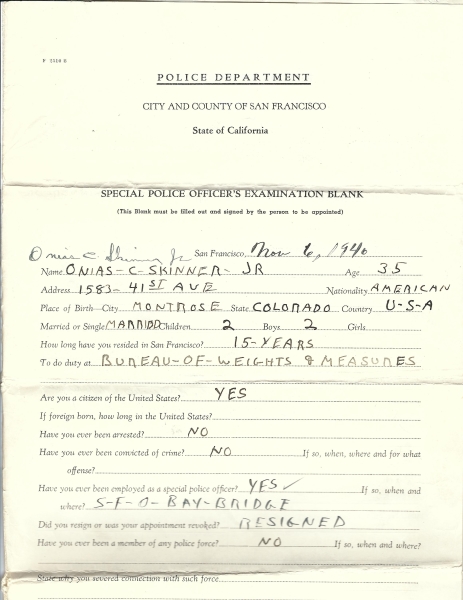 POLICE DEPARTMENT
CITY AND COUNTY OF SAN FRANCISCO
State of California
SPECIAL POLICE OFFICER'S EXAMINATION BLANK
(This Blank must be filled out and signed by the person to be appointed)
Onias C Skinner Jr San Francisco, Nov 6, 1940
Name ONIAS-C-SKINNER-JR Age 35
Address 1583-41ST AVE Nationality AMERICAN
Place of Birth—City MONTROSE State COLORADO Country U-S-A
Married or Single MARRIDD Children 2 Boys 2 Girls
How long have you resided in San Francisco? 15-YEARS
To do duty at BUREAU-OF-WEIGHTS & MEASURES
Are you a citizen of the United States? YES
If foreign born, how long in the United States?
Have you ever been arrested? NO
Have you ever been convicted of crime? NO If so, when, where and for what
offense?
Have you ever been employed as a special police officer? YES ✓ If so, when and
where? S-F-O-BAY-BRIDGE
Did you resign or was your appointment revoked? RESIGNED
Have you ever been a member of any police force? NO If so, when and where?
State why you severed connection with such force